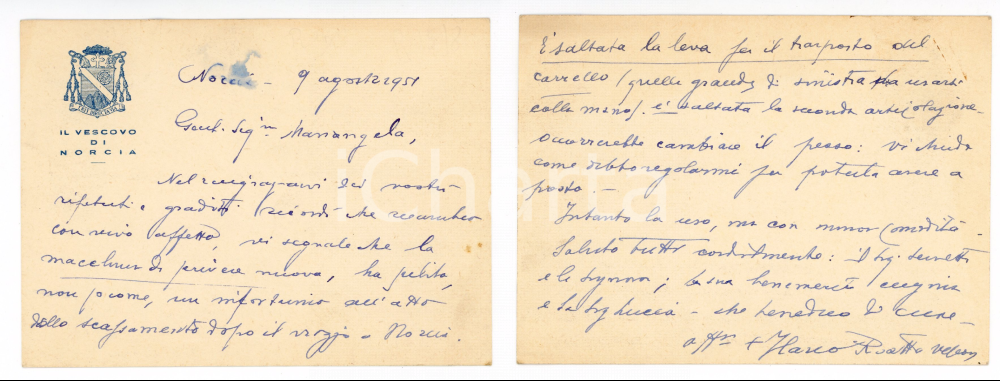 IL VESCOVO
DI
NORCIA
Norcia - 9 agosto 1951
Gent. Sig.na Mariangela,
Nel ringraziarvi dei vostri
ripetuti e graditi ricordi che ricambio
con vivo affetto, vi segnalo che la
macchina di scrivere nuova, ha subito,
non so come, un infortunio all'atto
dello scassamento dopo il viaggio a Norcia.
E' saltata la leva per il trasporto del
carrello (quella grande di sinistra da usarsi
colla mano). E' saltata la seconda articolazione.
Occorrerebbe cambiare il pezzo: vi chiedo
come debbo regolarmi per poterla avere a
posto. -
Intanto la uso, ma con minor comodità.
Saluto tutti cordialmente: il Sig.
e la Signora; la sua benemerita cugina
e la Sig. Lucia - che benedico di cuore -
+ Ilario Vescovo
iCharta